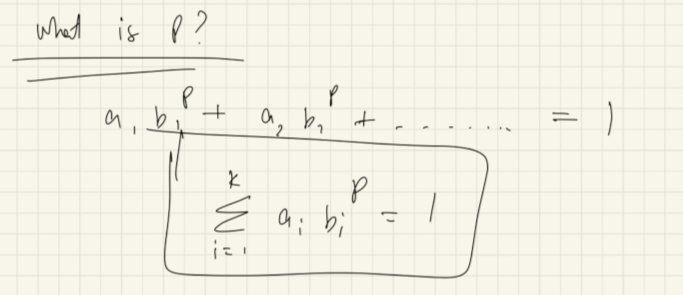 What is p?
a₁ b₁ᵖ + a₂ b₂ᵖ + ........ = 1
k
∑ aᵢ bᵢᵖ = 1
i=1